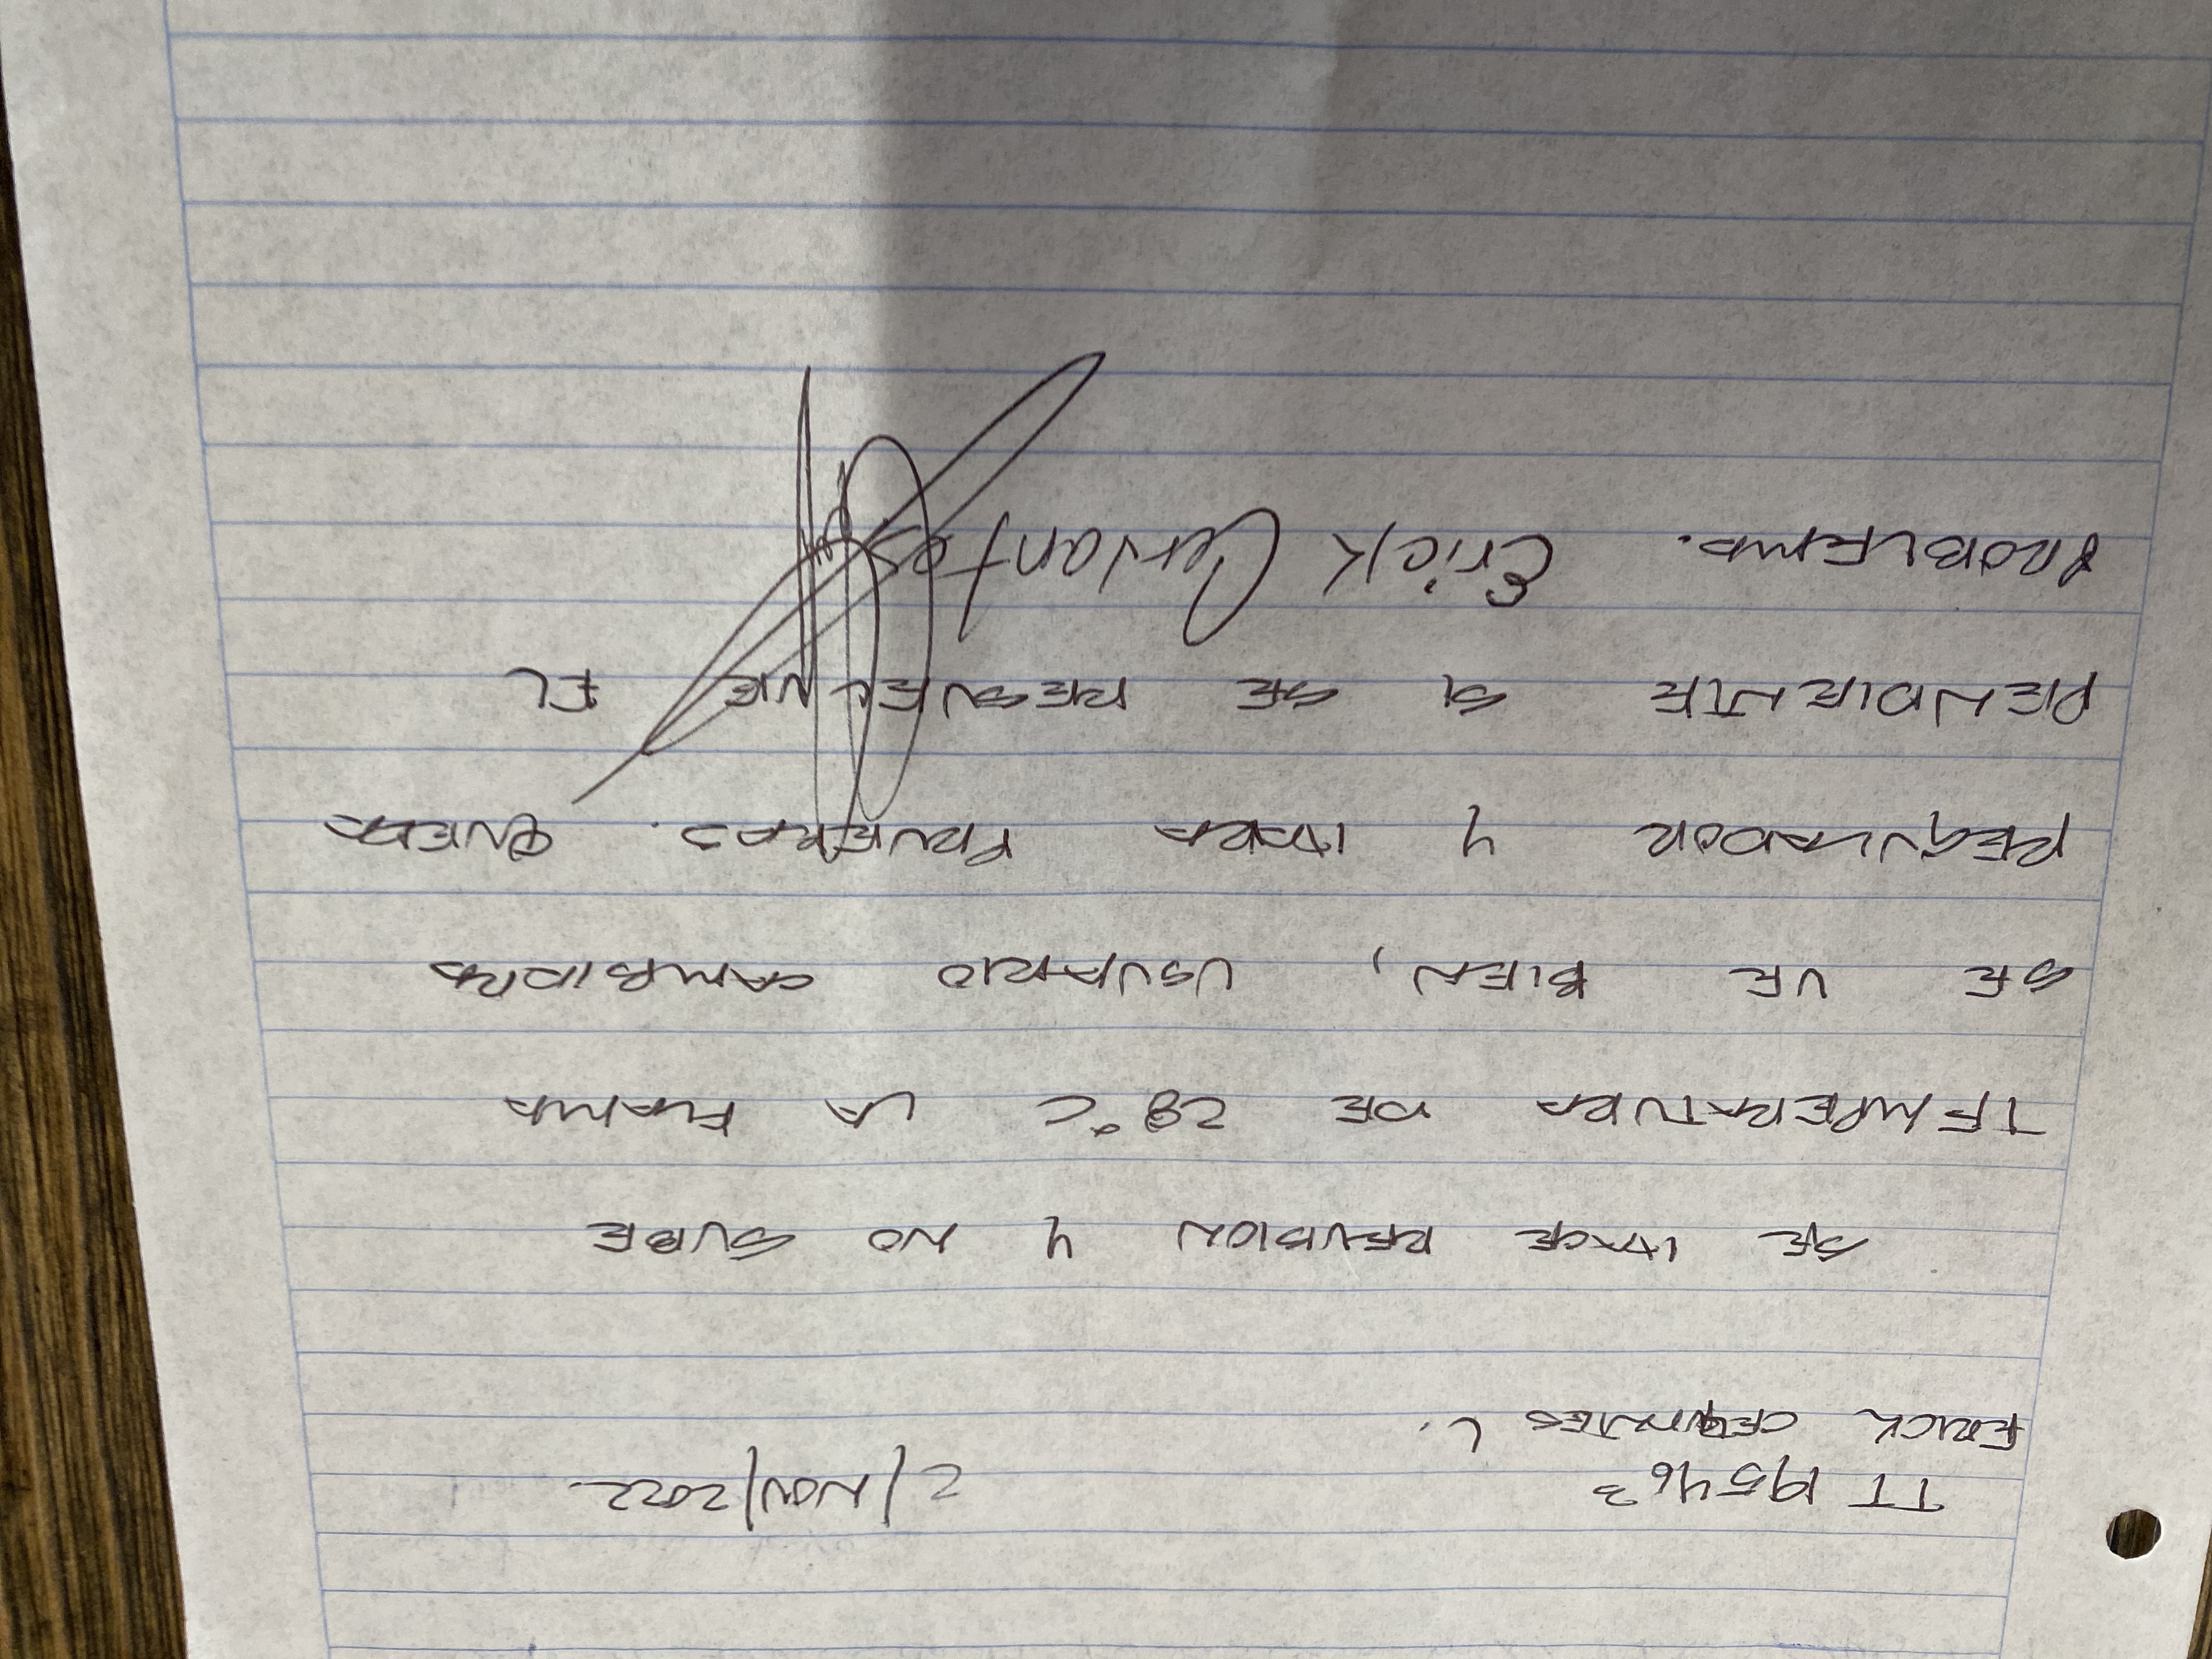 TT 195463 2/NOV/2022
ERICK CERVANTES L.
SE HACE REVISION Y NO SUBE
TEMPERATURA DE 28°C LA FLAMA
SE VE BIEN, USUARIO CAMBIARA
REGULADOR Y HARA PRUEBAS. QUEDA
PENDIENTE SI SE RESUELVE EL
PROBLEMA. Erick Cervantes